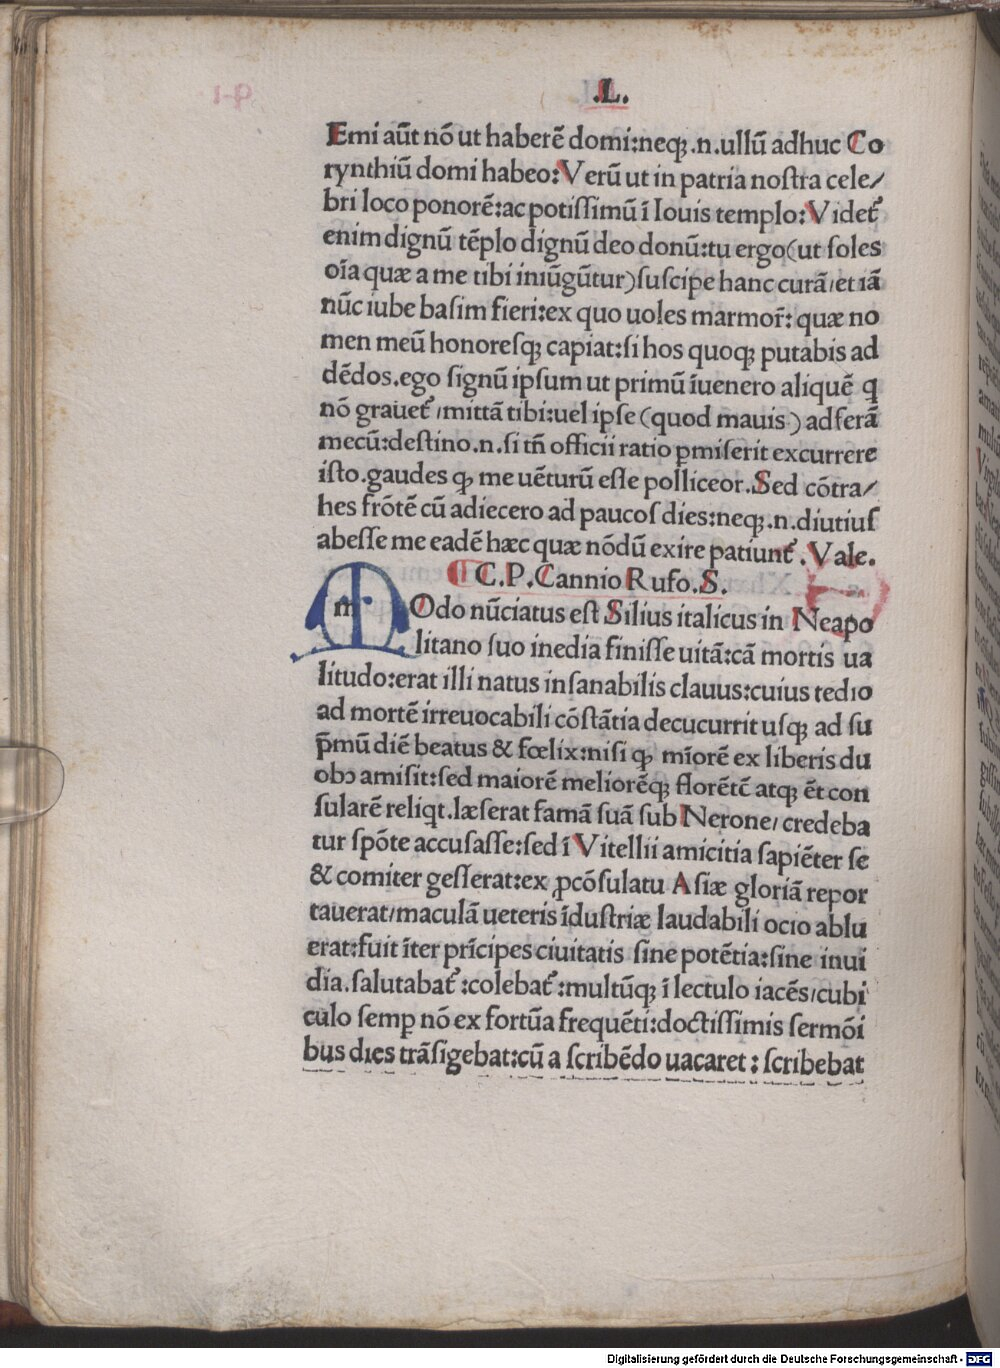 .L.
Emi aūt nō ut haberē domi:neqꝫ.n.ullū adhuc Co
rynthiū domi habeo:Verū ut in patria noſtra cele/
bri loco ponorē:ac potiſſimū ī Iouis templo:Videt᷑
enim dignū tēplo dignū deo donū:tu ergo(ut ſoles
oīa quæ a me tibi iniūgūtur)ſuſcipe hanc curā/et iā
nūc iube baſim fieri:ex quo uoles marmor̄: quæ no
men meū honoreſqꝫ capiat:ſi hos quoqꝫ putabis ad
dēdos.ego ſignū ipſum ut primū īuenero aliquē q
nō grauet᷑ /mittā tibi:uel ipſe (quod mauis) adferā
mecū:deſtino.n.ſi tn̄ officii ratio ꝑmiſerit excurrere
iſto.gaudes qꝫ me uētuꝛū eſſe polliceor.Sed cōtra/
hes frōtē cū adiecero ad paucoſ dies:neqꝫ.n.diutiuſ
abeſſe me eadē hæc quæ nōdū exire patiunt᷑.Vale.
C.P.Cannio Rufo.S.
m Odo nūciatus eſt Silius italicus in Neapo
litano ſuo inedia finiſſe uitā:cā mortis ua
litudo:erat illi natus inſanabilis clauus:cuius tedio
ad mortē irreuocabili cōſtātia decucurrit uſqꝫ ad ſu
p̄mū diē beatus & fœlix:niſi qꝫ mīorē ex liberis du
obꝰ amiſit:ſed maiorē meliorēqꝫ florētē atqꝫ ēt con
ſularē reliqt.læſerat famā ſuā ſub Nerone/ credeba
tur ſpōte accuſaſſe:ſed ī Vitellii amicitia ſapiēter ſe
& comiter geſſerat:ex ꝓcōſulatu Aſiæ gloriā repor
tauerat/maculā ueteris īduſtriæ laudabili ocio ablu
erat:fuit īter prīcipes ciuitatis ſine potētia:ſine inui
dia.ſalutabat᷑ :colebat᷑ :multūqꝫ ī lectulo iacēs/cubi
culo ſemꝑ nō ex fortūa frequēti:doctiſſimis ſermōi
bus dies trāſigebat:cū a ſcribēdo uacaret : ſcribebat
Digitalisierung gefördert durch die Deutsche Forschungsgemeinschaft - DFG